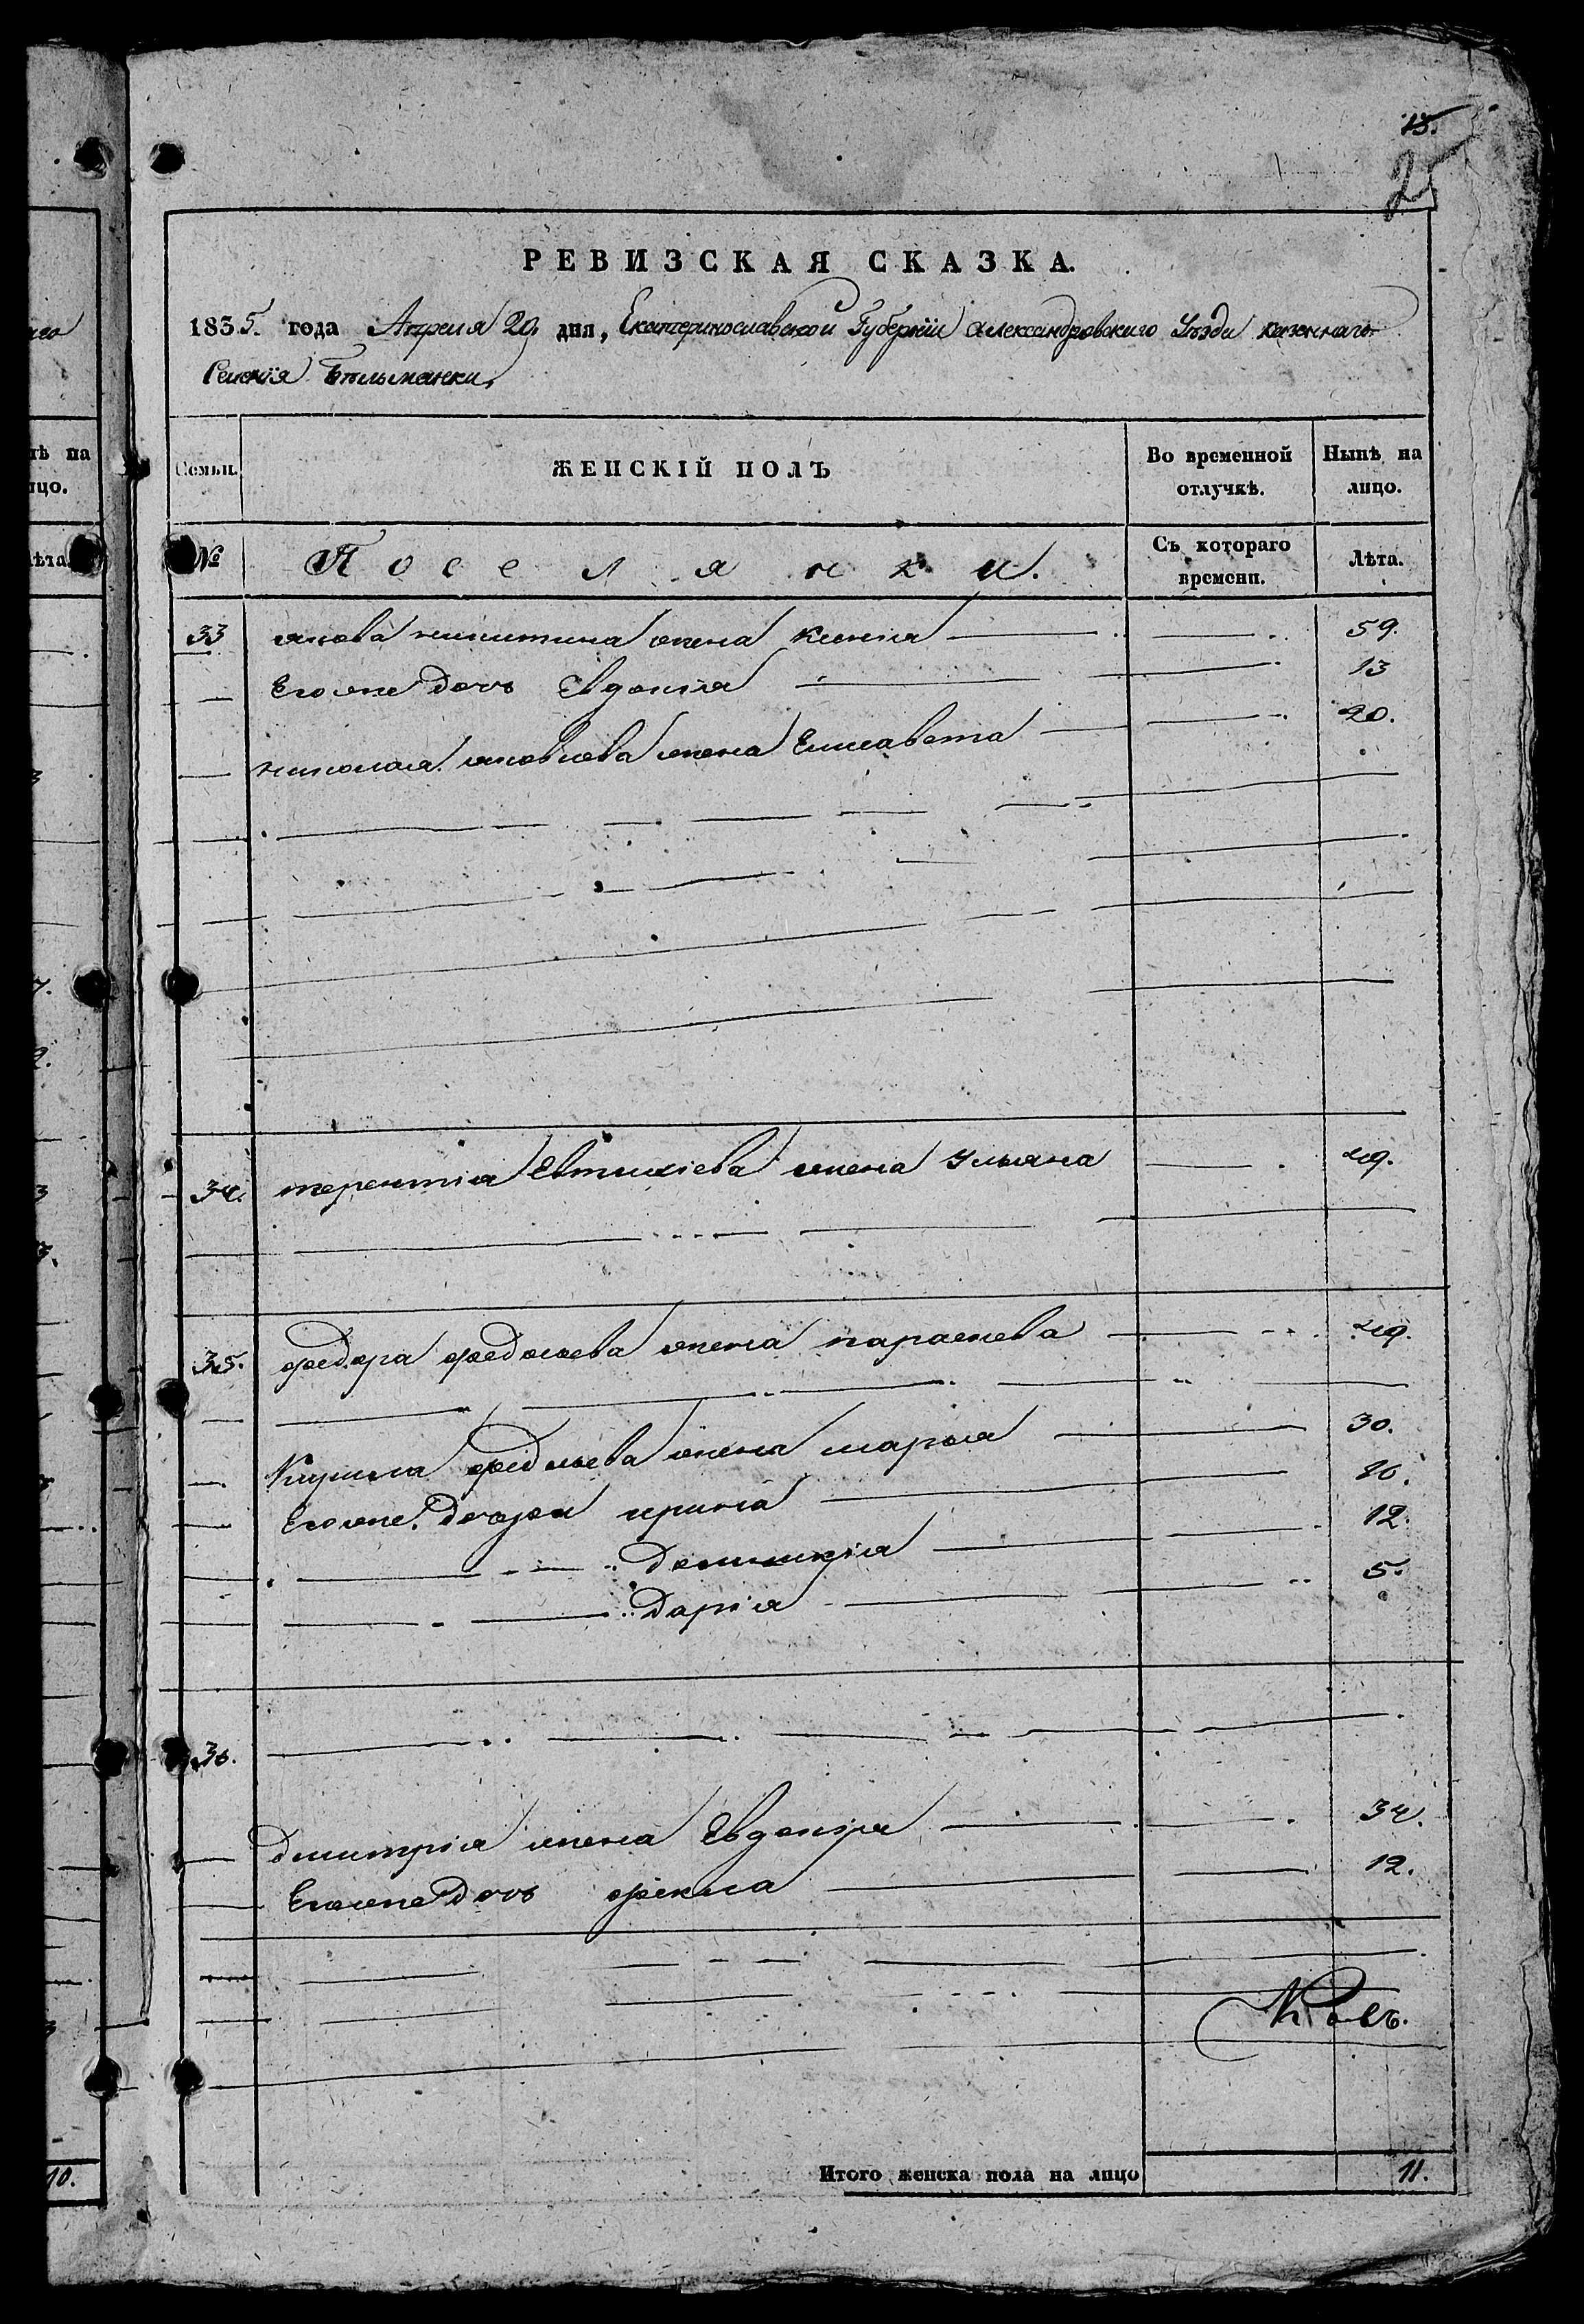 15.
25
РЕВИЗСКАЯ СКАЗКА.
1835. года Апреля 20 дня, Екатеринославской Губернїи Александровского Уѣзда казеннаго
Селенїя Бѣльманки,
Семьи.
ЖЕНСКІЙ ПОЛЪ
Во временной
отлучкѣ.
Нынѣ на
лицо.
№
Поселянки.
Съ котораго
времени.
Лѣта.
33 якова никитина жена Ксенія 59.
Егоже дочь Евдокія 13
николая яковлева жена Елисавета 20.
34. терентія Евтихіева жена Ульяна 49.
35. федора федосьева жена параскева 49.
Кирила жена марья 30.
Егоже дочери ирина 16.
12.
Дарія 5.
36.
Димитрія жена Евдокія 34.
Егоже дочь фекла 12.
Итого женска пола на лицо 11.
нѣ на
лицо.
Лѣта.
10.